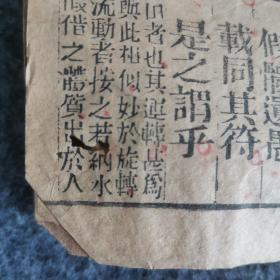 假體運
載同其符
是之謂乎
者也其運轉甚爲
與此相似妙於旋轉
流動者按之若納水
假借之體質出於人